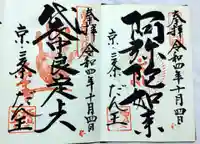 奉拝 令和四年十月四日
阿弥陀如来
京三条だん王
奉拝 令和四年十月四日
袋中良定大
京三条だん王